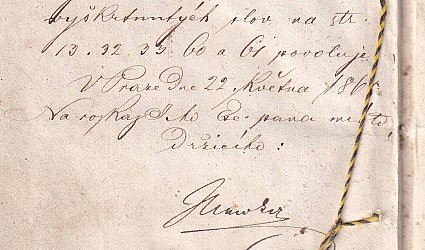 vyškrtnutých slov na str.
13. 32. 33. 60 a 61 povoluje
V Praze dne 22. Května 186
Na rozkaz Jeho Exc. pana místo
držícího: